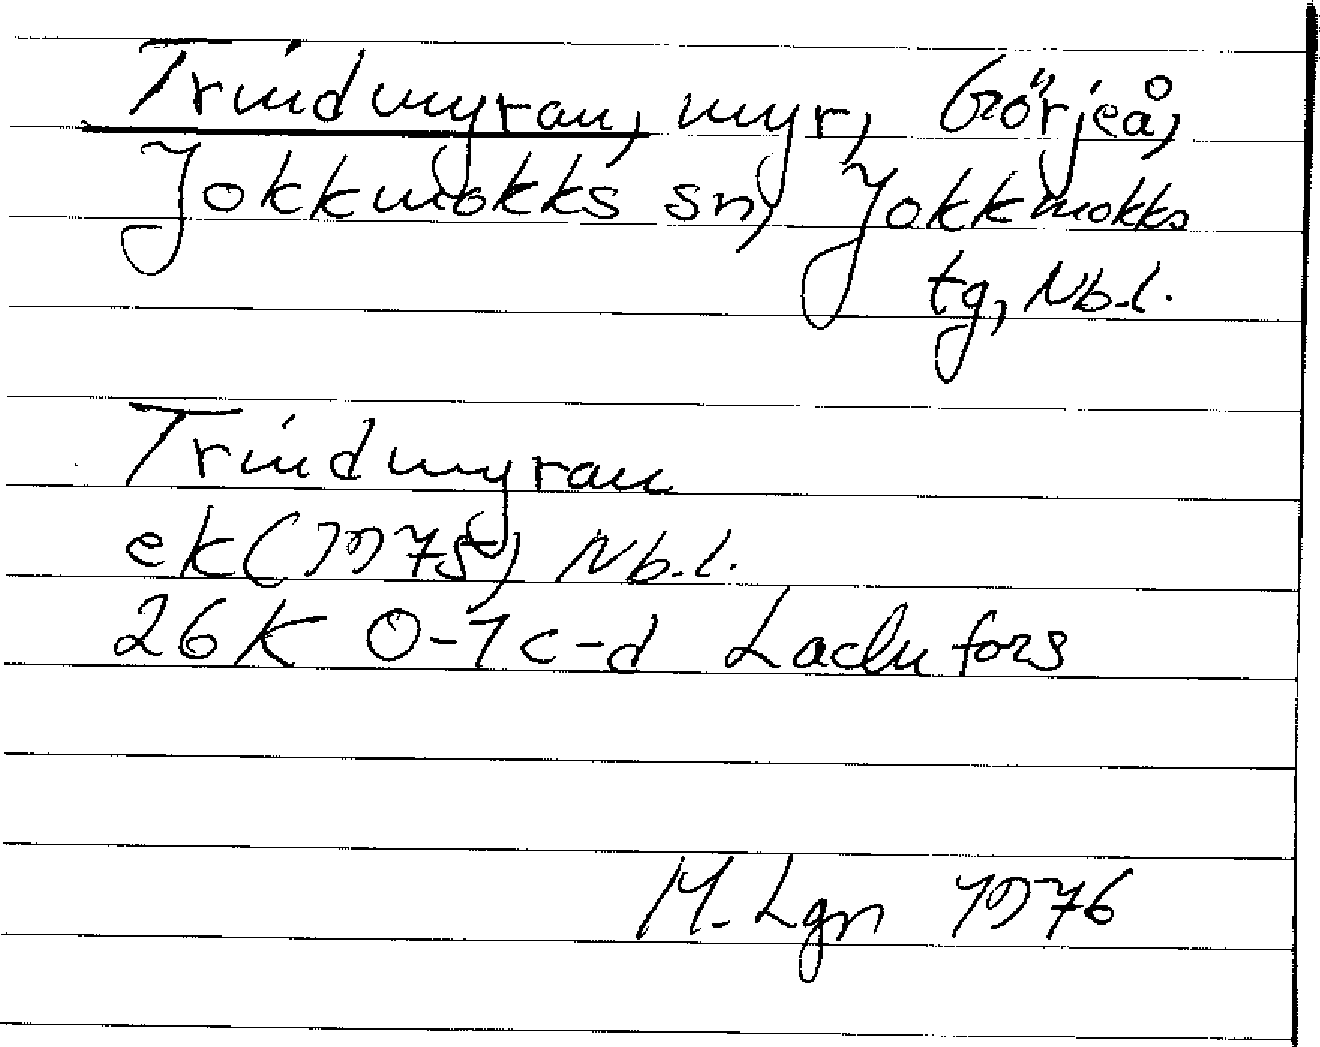 Trindmyran, myr, Görjeå,
Jokkmokks sn, Jokkmokks
tg, Nb.l.
Trindmyran
ek (1975) Nb.l.
26K 0-1 c-d Ladufors
M. Lgn 1976